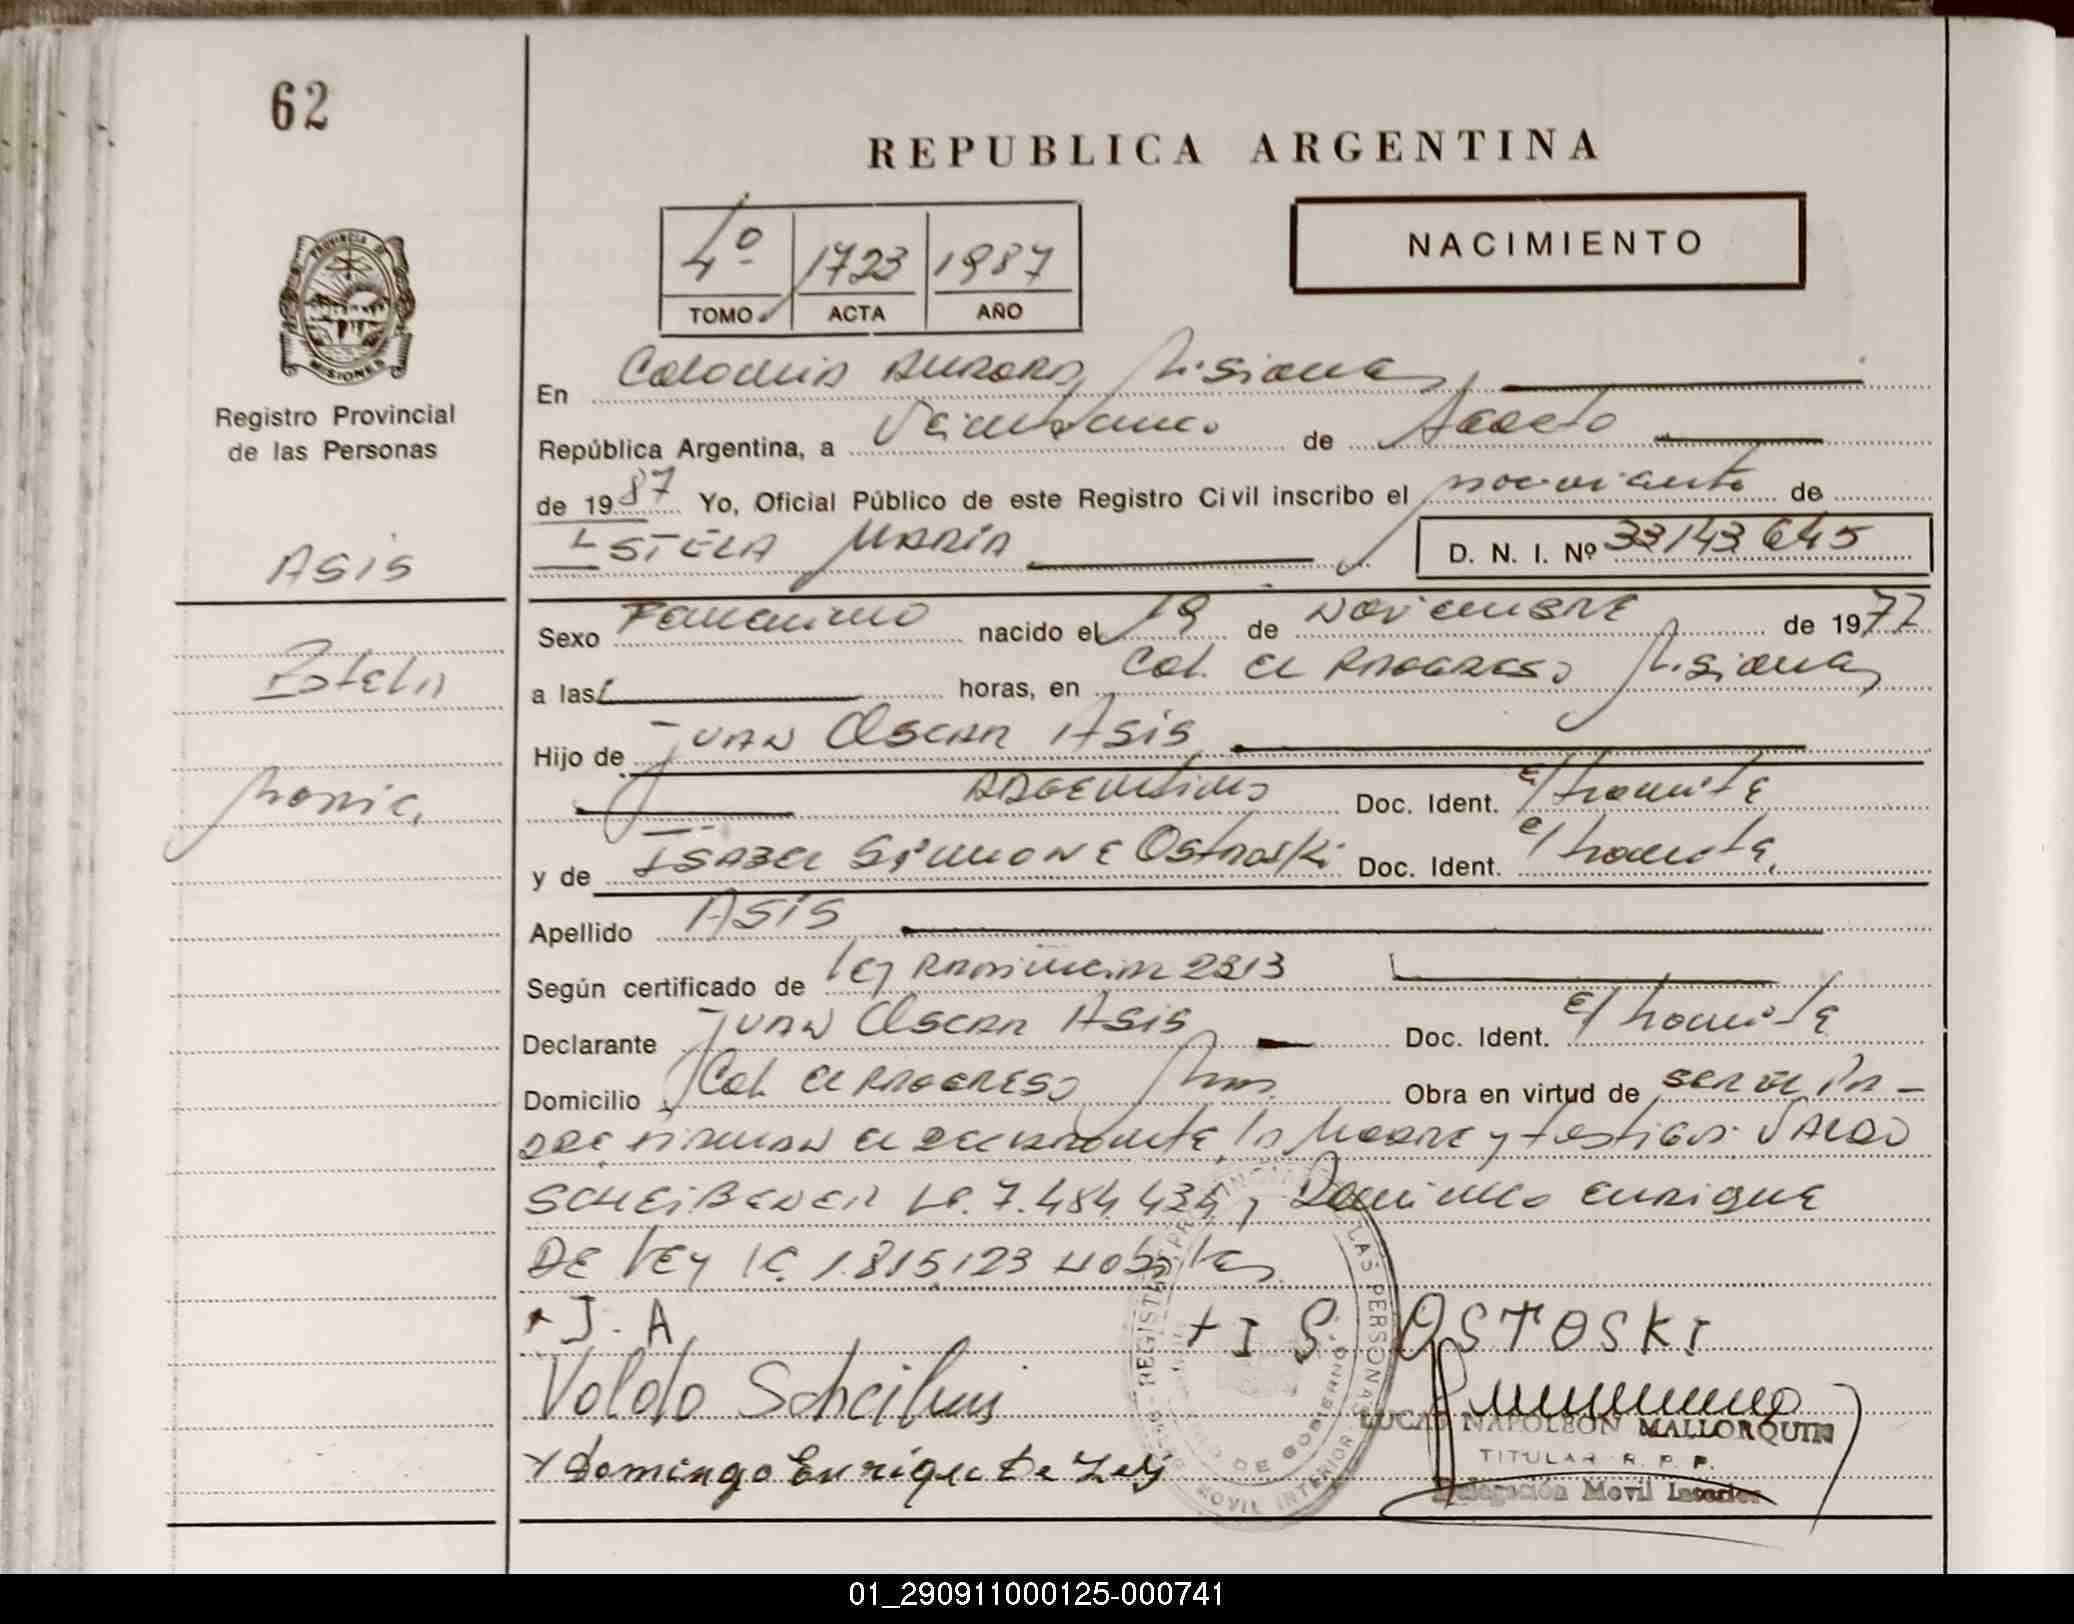 62
REPUBLICA ARGENTINA
4º 1723 1987
TOMO ACTA AÑO
NACIMIENTO
PROVINCIA DE MISIONES
Registro Provincial
de las Personas
Asis
Estela
Maria
En Colonia Aurora, Misiones,
República Argentina, a Veinticinco de Agosto
de 1987 Yo, Oficial Público de este Registro Civil inscribo el nacimiento de
ESTELA MARIA D. N. I. Nº 33143645
Sexo Femenino nacido el 19 de Noviembre de 1977
a las horas, en Col. El Progreso Misiones
Hijo de Juan Oscar Asis
Argentino Doc. Ident. E/tramite
y de Isabel Simone Ostroski Doc. Ident. e/tramite,
Apellido Asis
Según certificado de ley Provincial 2313
Declarante Juan Oscar Asis Doc. Ident. E/tramite
Domicilio Col. El Progreso Mnes. Obra en virtud de ser el Pa-
dre, firman el declarante, la Madre y testigos: Valdo
Scheibener LE. 7.484.434, Domingo Enrique
De Ley IC. 1.815.123 habiles
+ J. A + I S. OSTOSKI
Voldo
Domingo Enrique De Ley
REGISTRO PROVINCIAL DE LAS PERSONAS
DE GOBIERNO
MOVIL INTERIOR
LUCAS NAPOLEON MALLORQUIN
TITULAR R. P. P.
Delegación Movil Interior
01_290911000125-000741